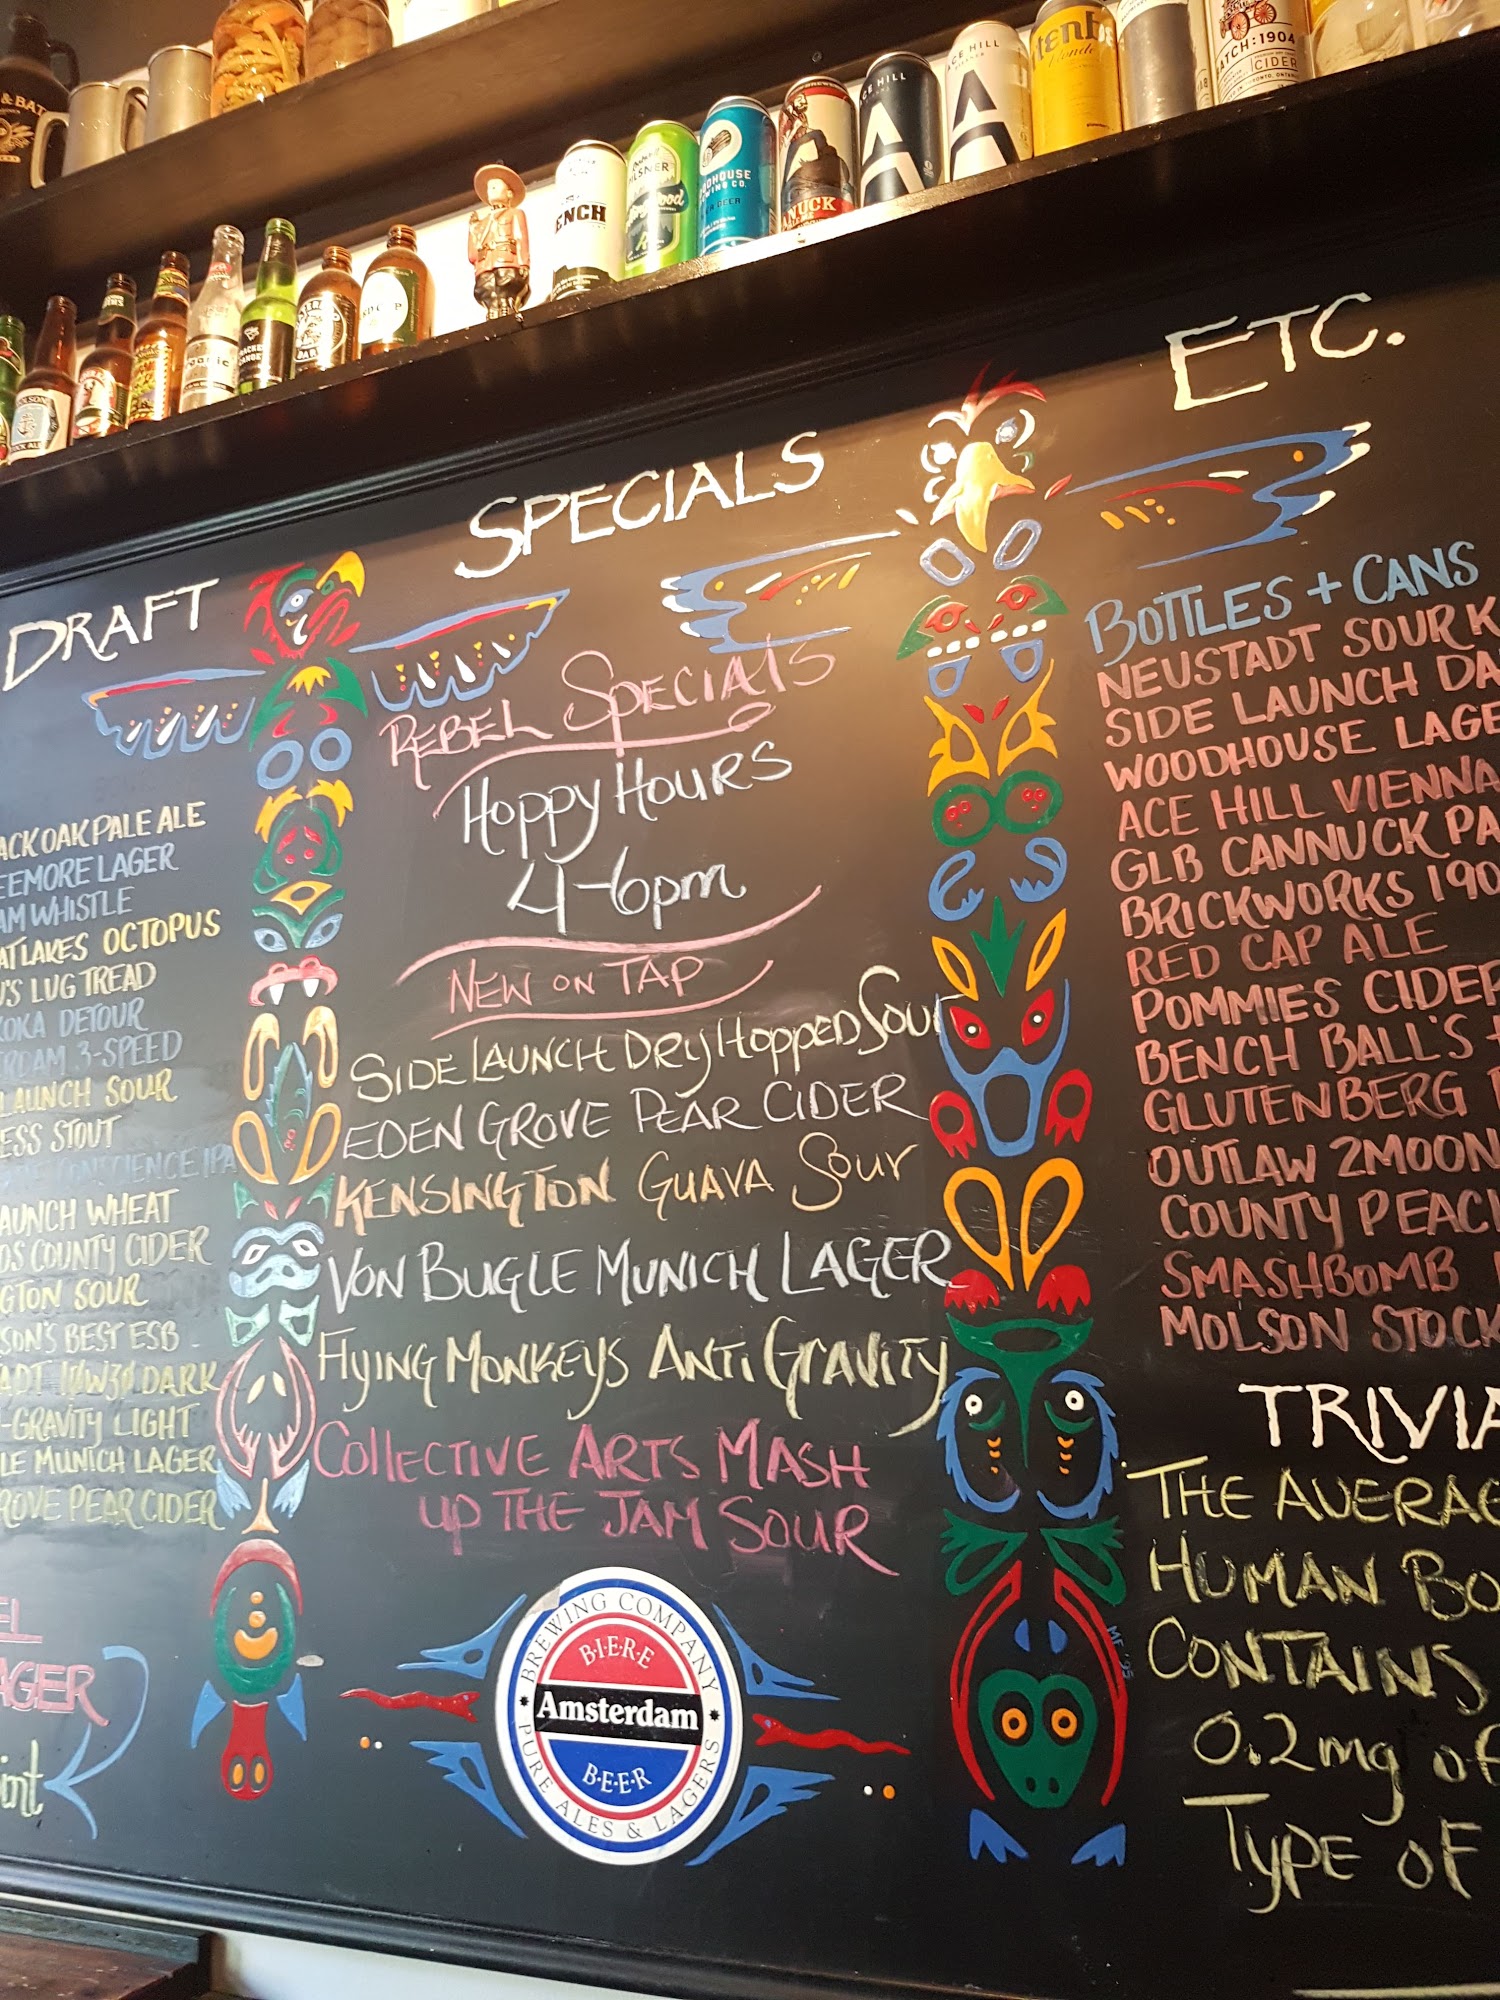 & BAT
ENCH
PILSNER
WING CO.
BEER
ANUCK
ACE HILL
BATCH: 1904
CIDER
DRAFT
ACK OAK PALE ALE
EEMORE LAGER
AM WHISTLE
AT LAKES OCTOPUS
'S LUG TREAD
KOKA DETOUR
RDAM 3-SPEED
LAUNCH SOUR
ESS STOUT
CONSCIENCE IPA
AUNCH WHEAT
DS COUNTY CIDER
GTON SOUR
SON'S BEST ESB
ADT 10W30 DARK
-GRAVITY LIGHT
LE MUNICH LAGER
ROVE PEAR CIDER
AGER
int
SPECIALS
REBEL SPECIALS
HOPPY HOURS
4-6pm
NEW ON TAP
SIDE LAUNCH DRY HOPPED SOUR
EDEN GROVE PEAR CIDER
KENSINGTON GUAVA SOUR
VON BUGLE MUNICH LAGER
FLYING MONKEYS ANTI GRAVITY
COLLECTIVE ARTS MASH
UP THE JAM SOUR
BREWING COMPANY
B·I·E·R·E
Amsterdam
B·E·E·R
PURE ALES & LAGERS
ETC.
BOTTLES + CANS
NEUSTADT SOUR K
SIDE LAUNCH DA
WOODHOUSE LAGE
ACE HILL VIENNA
GLB CANNUCK PA
BRICKWORKS 190
RED CAP ALE
POMMIES CIDER
BENCH BALL'S +
GLUTENBERG
OUTLAW 2MOON
COUNTY PEAC
SMASHBOMB
MOLSON STOCK
TRIVIA
THE AVERAG
HUMAN BO
CONTAINS
0.2mg of
TYPE OF
MF '95